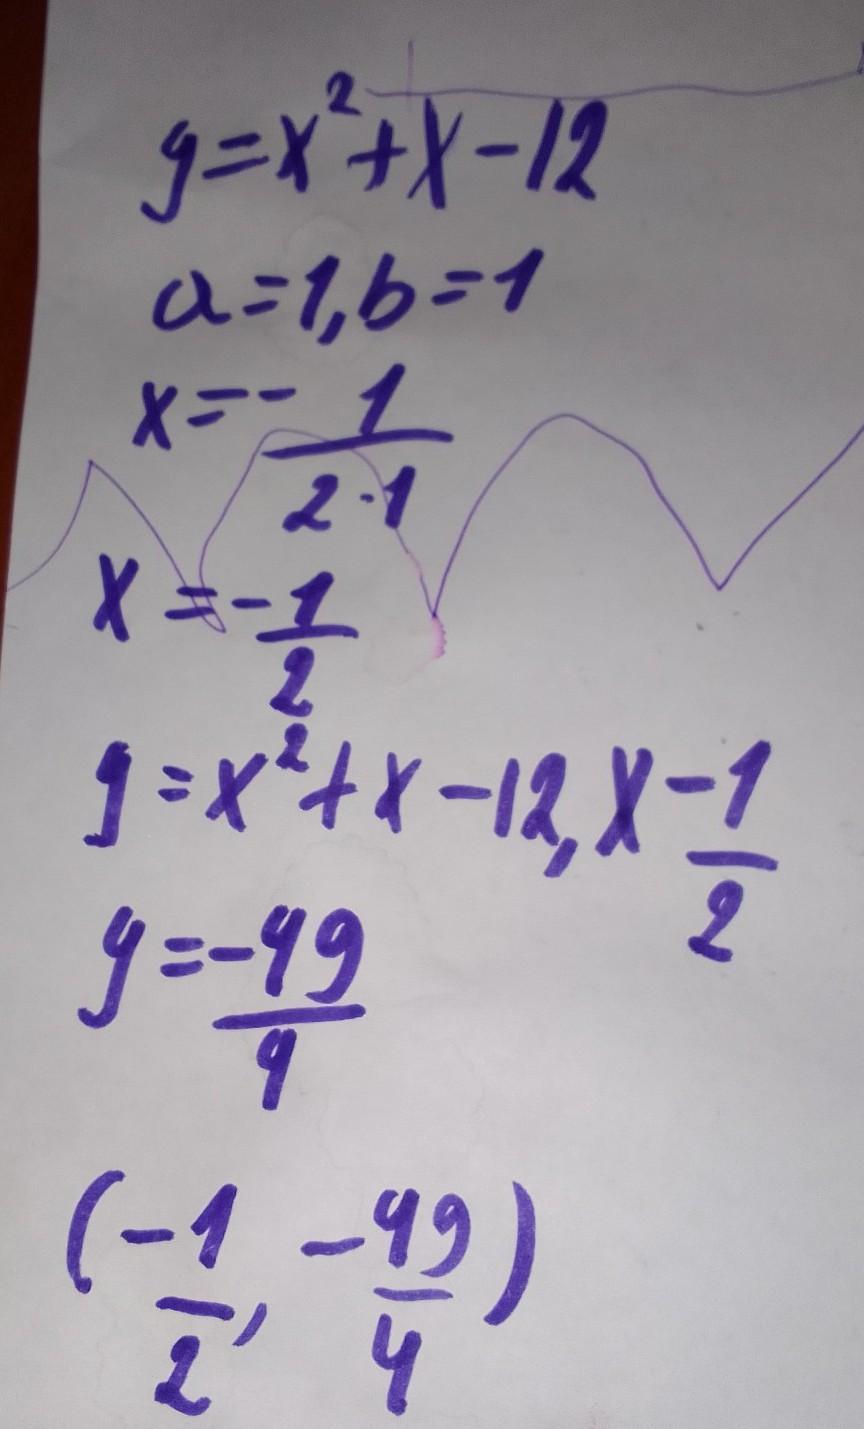 y=x²+x-12
a=1,b=1
x=-1/2·1
x=-1/2
y=x²+x-12,x-1/2
y=-49/4
(-1/2,-49/4)